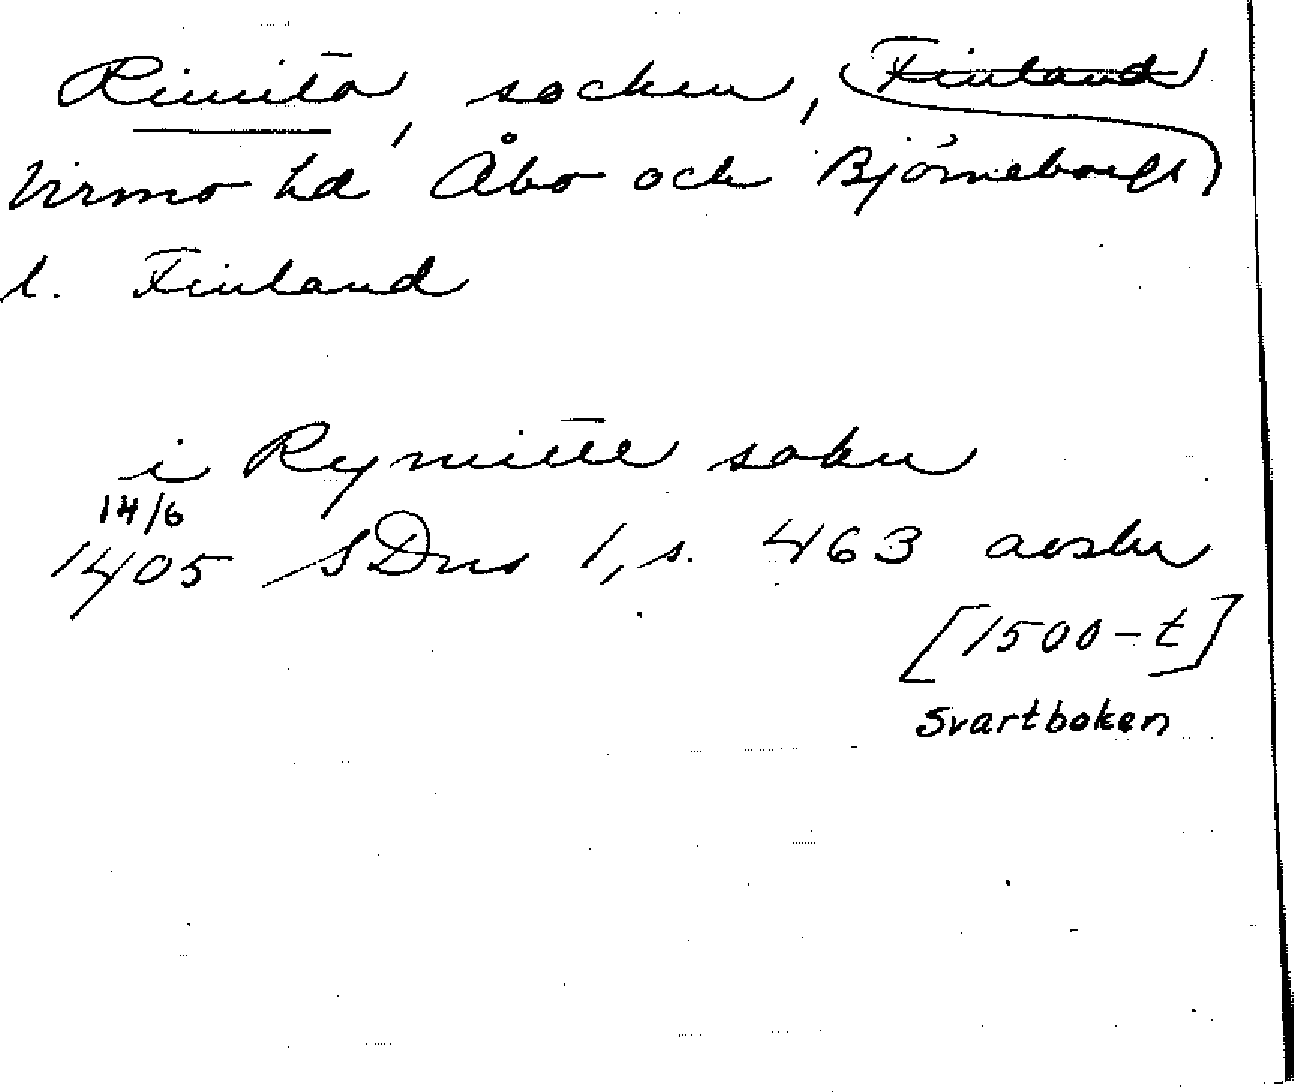 Rimito, socken, Finland
Virmo hd Åbo och Björneborgs
l. Finland
i Rymitte sokn
14/6
1405 SDns 1, s. 463 avskr
[1500-t]
Svartboken